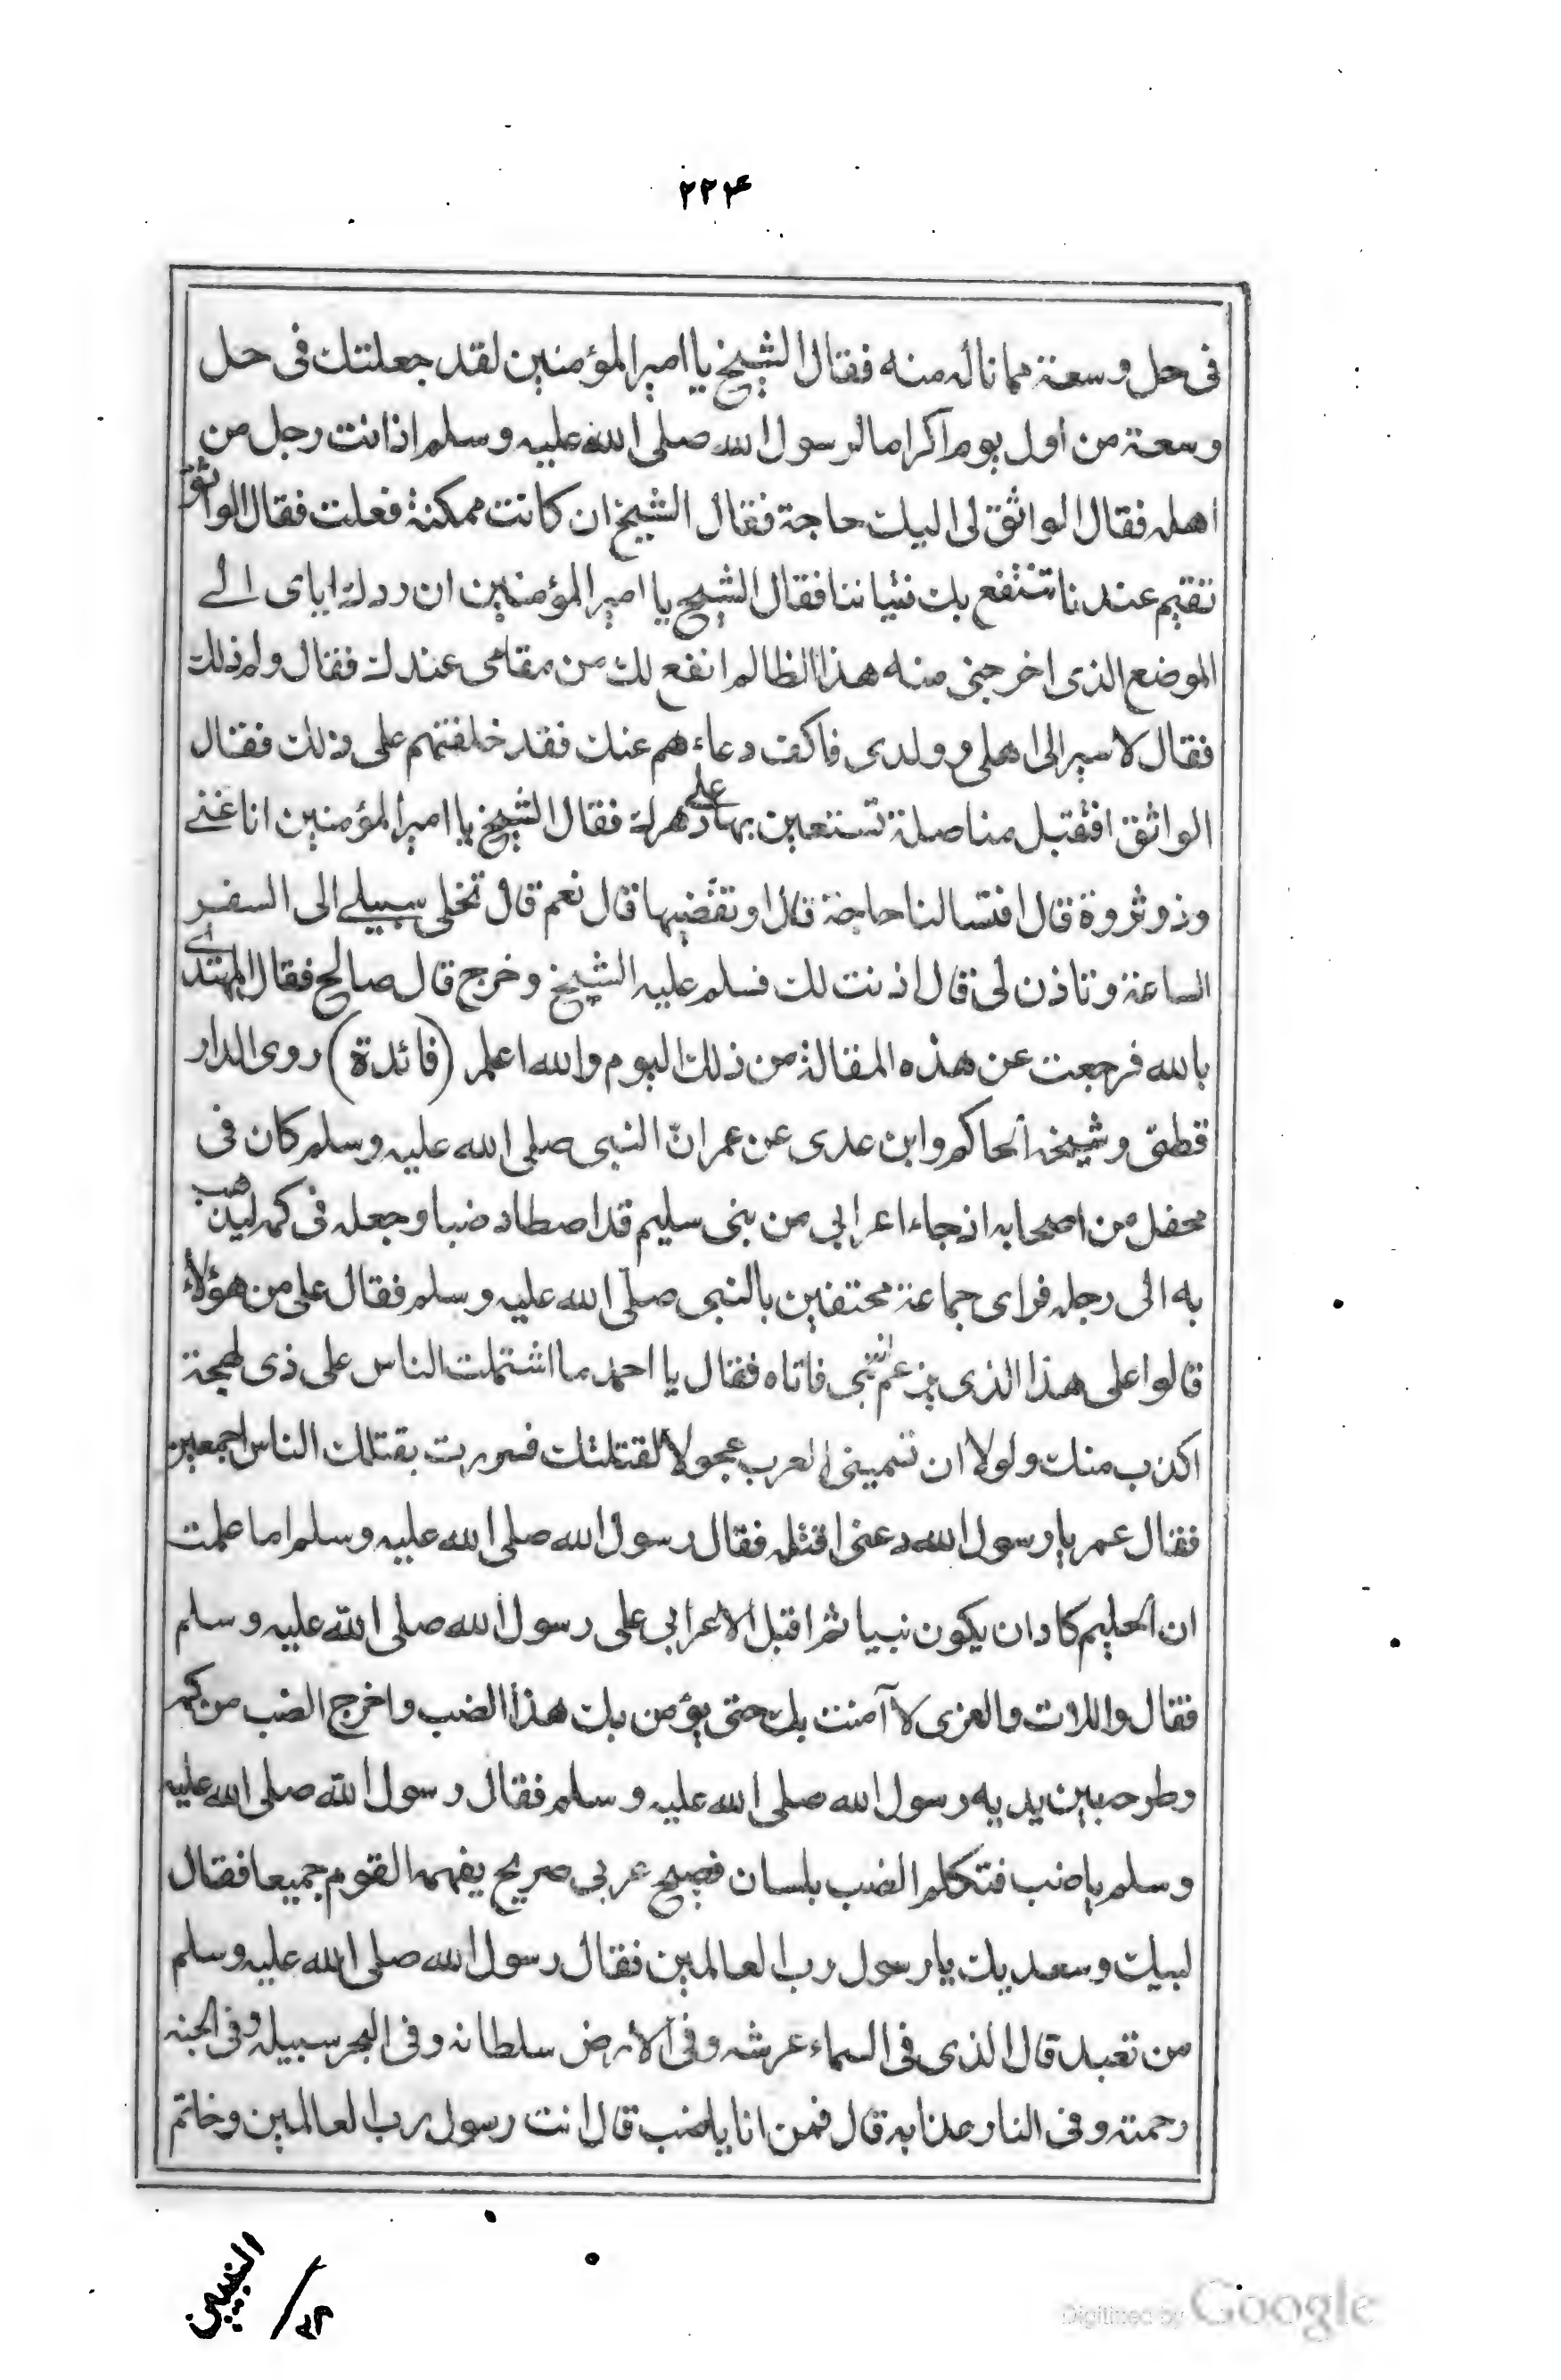 ٢٢۴
فى حل وسعة مما ناله منه فقال الشيخ يا امير المؤمنين لقد جعلتك فى حل
وسعة من اول يوم اكراما لرسول الله صلى الله عليه وسلم اذ انت رجل من
اهله فقال الواثق لى اليك حاجة فقال الشيخ ان كانت ممكنة فعلت فقال الواثق
تقيم عندنا تنتفع بك فتياننا فقال الشيخ يا امير المؤمنين ان ردك اياى الے
الموضع الذى اخرجنى منه هذا الظالم انفع لك من مقامى عندك فقال ولم ذلك
فقال لاسير الى اهلى وولدى فاكف دعاءهم عنك فقد خلفتهم على ذلك فقال
الواثق افتقبل منا صلة تستعين بها على دهرك فقال الشيخ يا امير المؤمنين انا غنے
وذو ثروة قال افتسالنا حاجة قال او تقضيها قال نعم قال تخلى سبيلے الى السفر
الساعة وتاذن لى قال اذنت لك فسلم عليه الشيخ وخرج قال صالح فقال المهتدى
بالله فرجعت عن هذه المقالة من ذلك اليوم والله اعلم (فائدة) روى الدار
قطنى وشيخه الحاكم وابن عدى عن عمر انّ النبى صلى الله عليه وسلم كان فى
محفل من اصحابه اذ جاء اعرابى من بنى سليم قد اصطاد ضبا وجعله فى كمه ليذهب
به الى رحله فراى جماعة محتفين بالنبى صلى الله عليه وسلم فقال على من هؤلاء
قالوا على هذا الذى يزعم انه نبى فاتاه فقال يا احمد ما اشتملت الناس على ذى لهجة
اكذب منك ولولا ان تسمينى العرب عجولا لقتلتك فسررت بقتلك الناس اجمعين
فقال عمر يا رسول الله دعنى اقتله فقال رسول الله صلى الله عليه وسلم اما علمت
ان الحليم كاد ان يكون نبيا ثم اقبل الاعرابى على رسول الله صلى الله عليه وسلم
فقال واللات والعزى لا آمنت بك حتى يؤمن بك هذا الضب واخرج الضب من كمه
وطرحه بين يديه رسول الله صلى الله عليه وسلم فقال رسول الله صلى الله عليه
وسلم يا ضب فتكلم الضب بلسان فصيح عربى صريح يفهمه القوم جميعا فقال
لبيك وسعديك يا رسول رب العالمين فقال رسول الله صلى الله عليه وسلم
من تعبد قال الذى فى السماء عرشه وفى الارض سلطانه وفى البحر سبيله وفى الجنه
رحمته وفى النار عذابه قال فمن انا يا ضب قال انت رسول رب العالمين وخاتم
النبيين
Digitized by Google